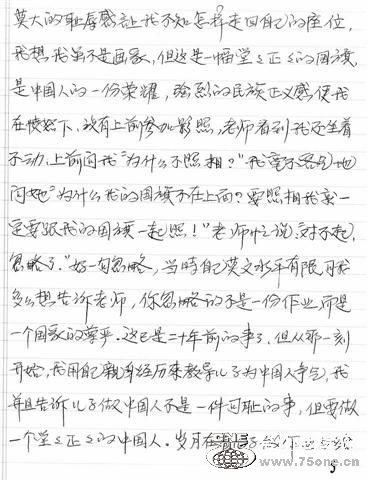 莫大的耻辱感让我不知怎样走回自己的座位,
我想我虽不是画家,但这是一幅堂〻正〻的国旗,
是中国人的一份荣耀,强烈的民族正义感使我
在愤怒下,没有上前参加影照,老师看到我还坐着
不动,上前问我"为什么不照相?"我毫不客气地
问她"为什么我的国旗不在上面?要照相我就一
定要跟我的国旗一起照!"老师忙说:对不起,
忽略了."好一句忽略,当时自己英文水平有限,可我
多么想告诉老师,你忽略的不是一份作业,而是
一个国家的尊严.这已是二十年前的事了,但从那一刻
开始,我用自己亲身经历来教导儿子为中国人争气,我
并且告诉儿子做中国人不是一件可耻的事,但要做
一个堂〻正〻的中国人.岁月在
www.75one.cn
5